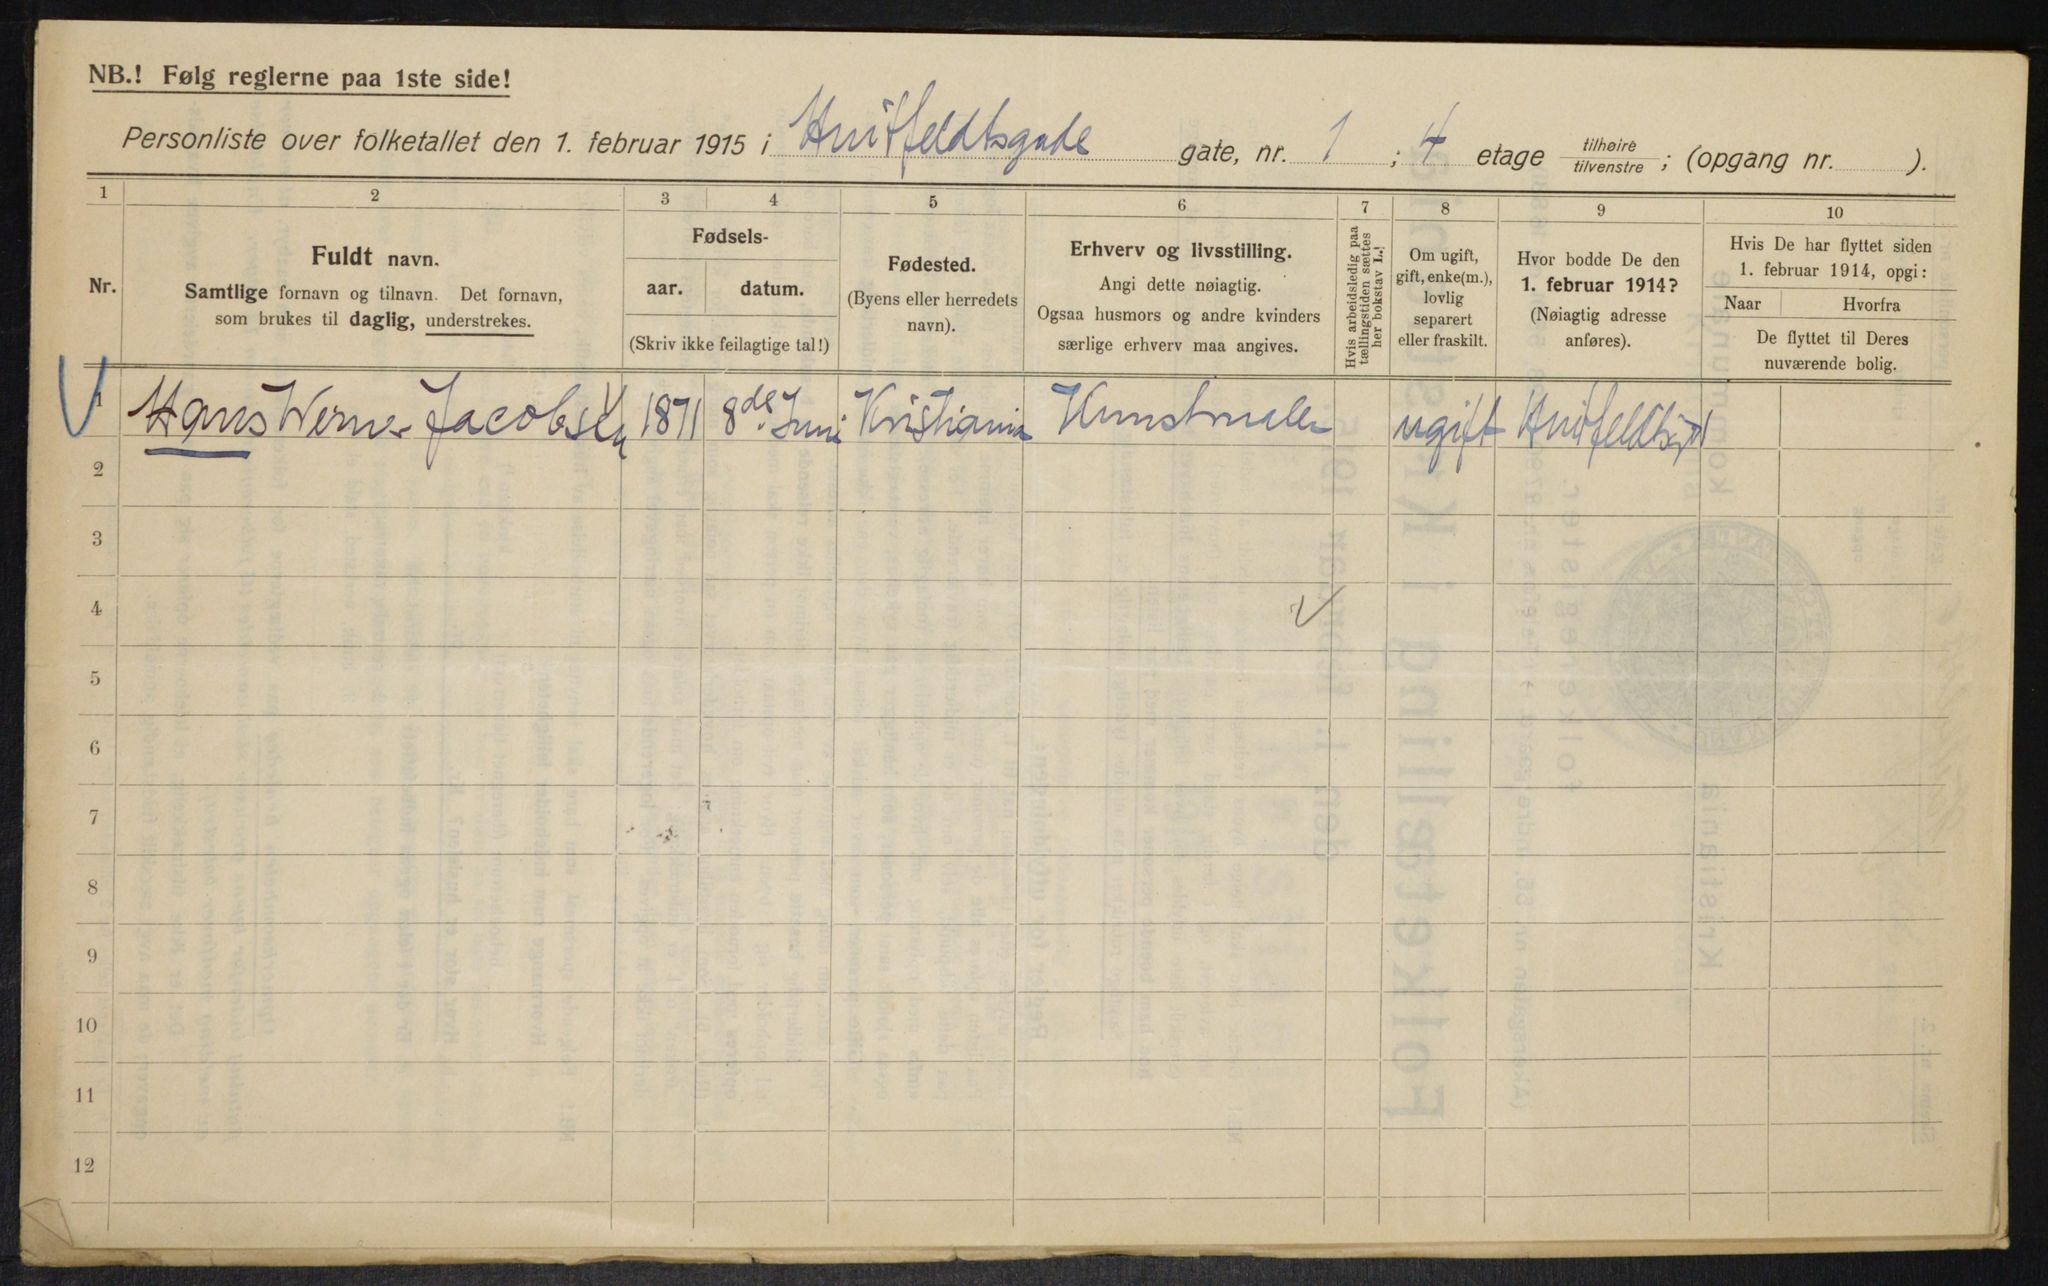 NB.! Følg reglerne paa 1ste side!
Personliste over folketallet den 1. februar 1915 i Huitfeldtsgade gate, nr. 1 ; 4 etage tilhøire tilvenstre ; (opgang nr. ).
1 2 3 4 5 6 7 8 9 10
Nr.
Fuldt navn.
Samtlige fornavn og tilnavn. Det fornavn,
som brukes til daglig, understrekes.
Fødsels-
aar. datum.
(Skriv ikke feilagtige tal!)
Fødested.
(Byens eller herredets
navn).
Erhverv og livsstilling.
Angi dette nøiagtig.
Ogsaa husmors og andre kvinders
særlige erhverv maa angives.
Hvis arbeidsledig paa
tællingstiden sættes
her bokstav L.!
Om ugift,
gift, enke(m.),
lovlig
separert
eller fraskilt.
Hvor bodde De den
1. februar 1914?
(Nøiagtig adresse
anføres).
Hvis De har flyttet siden
1. februar 1914, opgi:
Naar Hvorfra
De flyttet til Deres
nuværende bolig.
1 Hans Werner Jacobsen 1871 8de Juni Kristiania Kunstmaler ugift
2
3
4
5
6
7
8
9
10
11
12